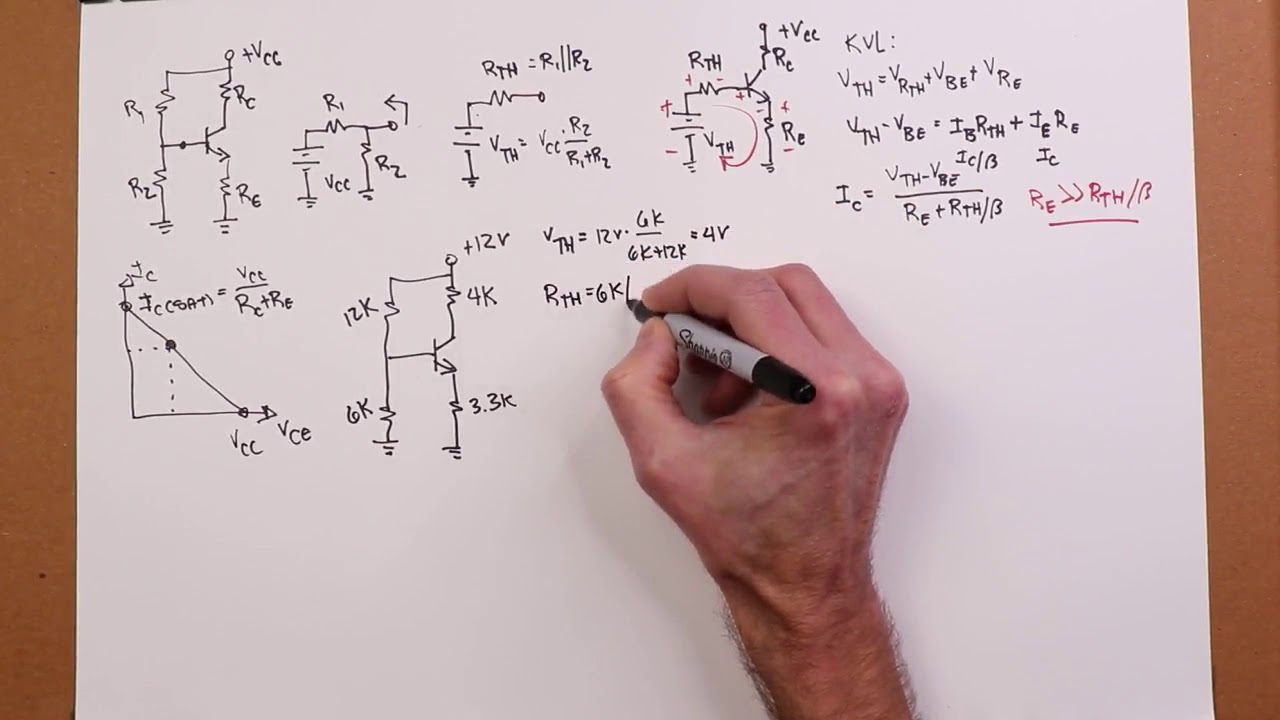 +VCC
R1
RC
R2
RE
R1
VCC
R2
RTH = R1||R2
VTH = VCC · R2
R1+R2
+VCC
RC
RTH
+ -
+ -
+ +
VTH
RE
- -
KVL:
VTH = VRTH + VBE + VRE
VTH - VBE = IBRTH + IE RE
IC/β IC
IC = VTH - VBE
RE + RTH/β
RE >> RTH/β
IC
IC(SAT) = VCC
RC+RE
VCC
VCE
+12V
12K
4K
6K
3.3K
VTH = 12V · 6K = 4V
6K+12K
RTH = 6K|
Sharpie